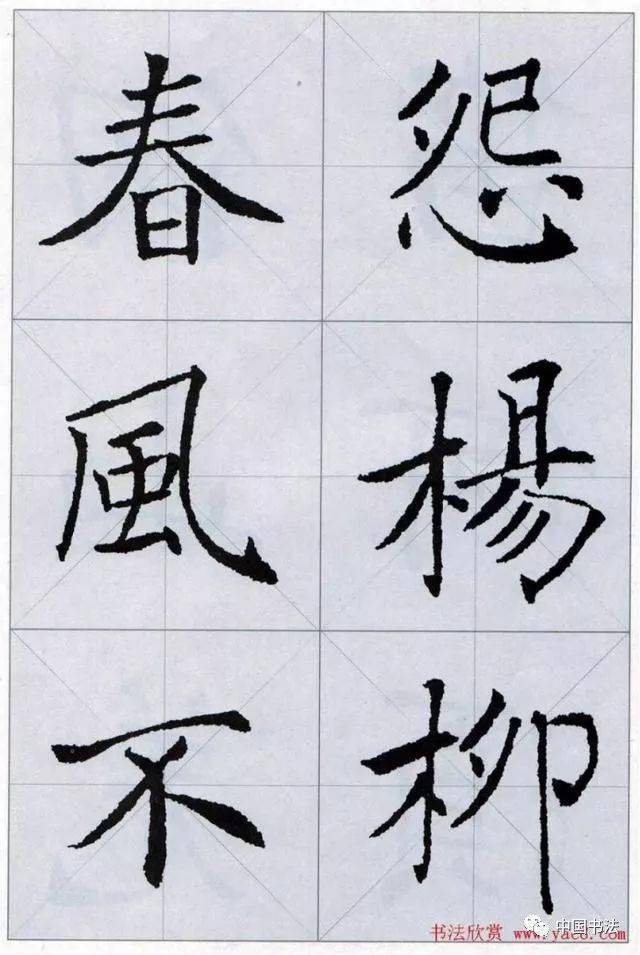 怨楊柳
春風不
中国书法
书法欣赏 www.yac8.com